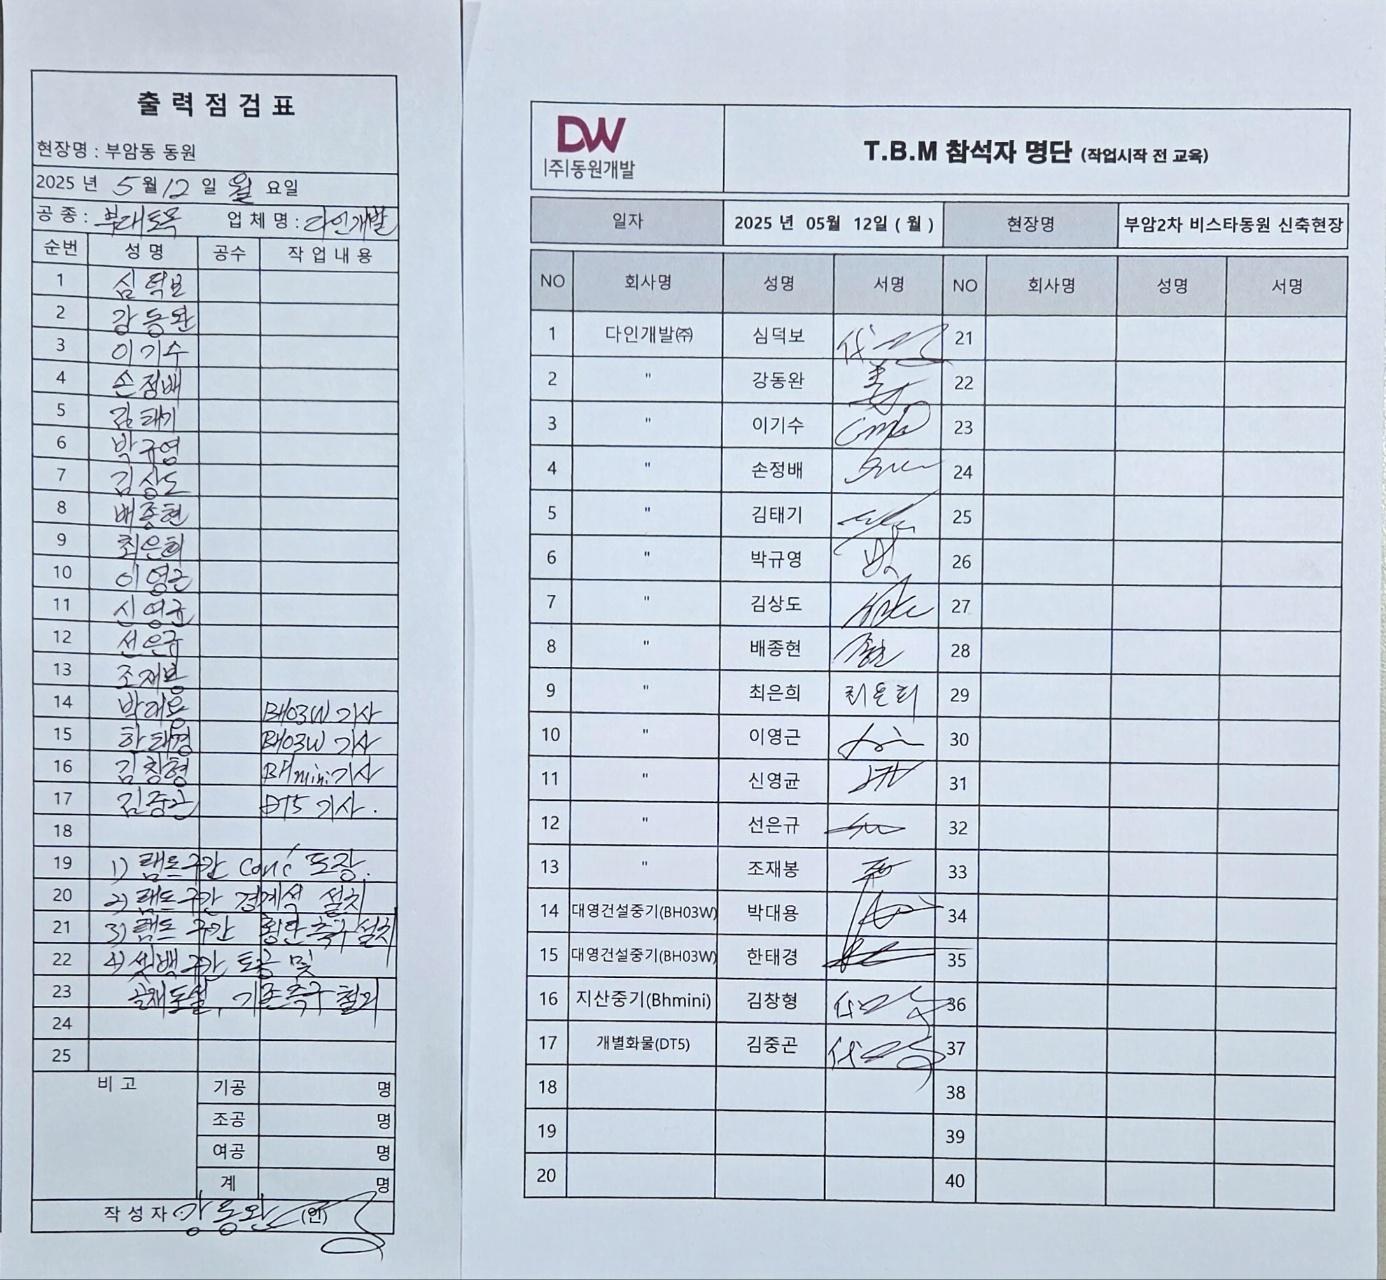 출 력 점 검 표
현장명 : 부암동 동원
2025 년 5 월 12 일 월 요일
공 종 : 부대토목 업 체 명 : 다인개발
순번 성 명 공수 작 업 내 용
1 심덕보
2 강동완
3 이기수
4 손정배
5 김태기
6 박규영
7 김상도
8 배종현
9 최은희
10 이영근
11 신영균
12 선은규
13 조재봉
14 박대용 BH03W 기사
15 한태경 BH03W 기사
16 김창형 BHmini 기사
17 김중곤 DT5 기사.
18
19 1) 램프구간 conc' 포장.
20 2) 램프구간 경계석 설치
21 3) 램프 구간 횡단측구 설치
22 4) 씻백구간 토공 및
23 골재도설, 기존측구 철거
24
25
비 고 기공 명
조공 명
여공 명
계 명
작 성 자 강동완 (인)
DW
|주|동원개발
T.B.M 참석자 명단 (작업시작 전 교육)
일자 2025 년 05월 12일 ( 월 ) 현장명 부암2차 비스타동원 신축현장
NO 회사명 성명 서명 NO 회사명 성명 서명
1 다인개발㈜ 심덕보 21
2 " 강동완 22
3 " 이기수 23
4 " 손정배 24
5 " 김태기 25
6 " 박규영 26
7 " 김상도 27
8 " 배종현 28
9 " 최은희 최은희 29
10 " 이영근 30
11 " 신영균 31
12 " 선은규 32
13 " 조재봉 33
14 대영건설중기(BH03W) 박대용 34
15 대영건설중기(BH03W) 한태경 35
16 지산중기(Bhmini) 김창형 36
17 개별화물(DT5) 김중곤 37
18 38
19 39
20 40